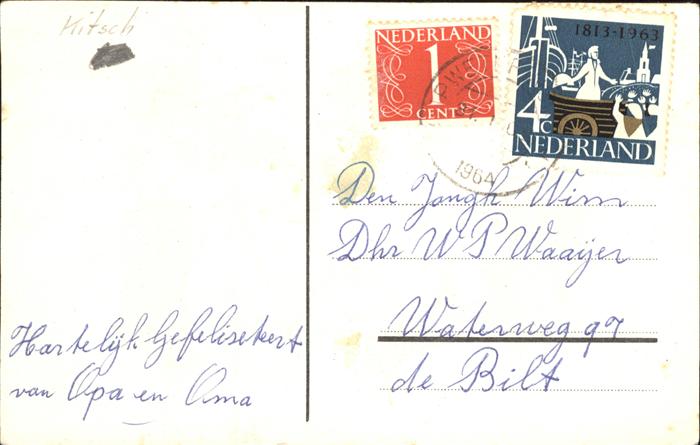 Kitsch
NEDERLAND
1
CENT
1813-1963
4c
NEDERLAND
1964
Den Jongh Wim
Dhr W P Waaijer
Waterweg 97
de Bilt
Hartelijk Gefeliseteert
van Opa en Oma